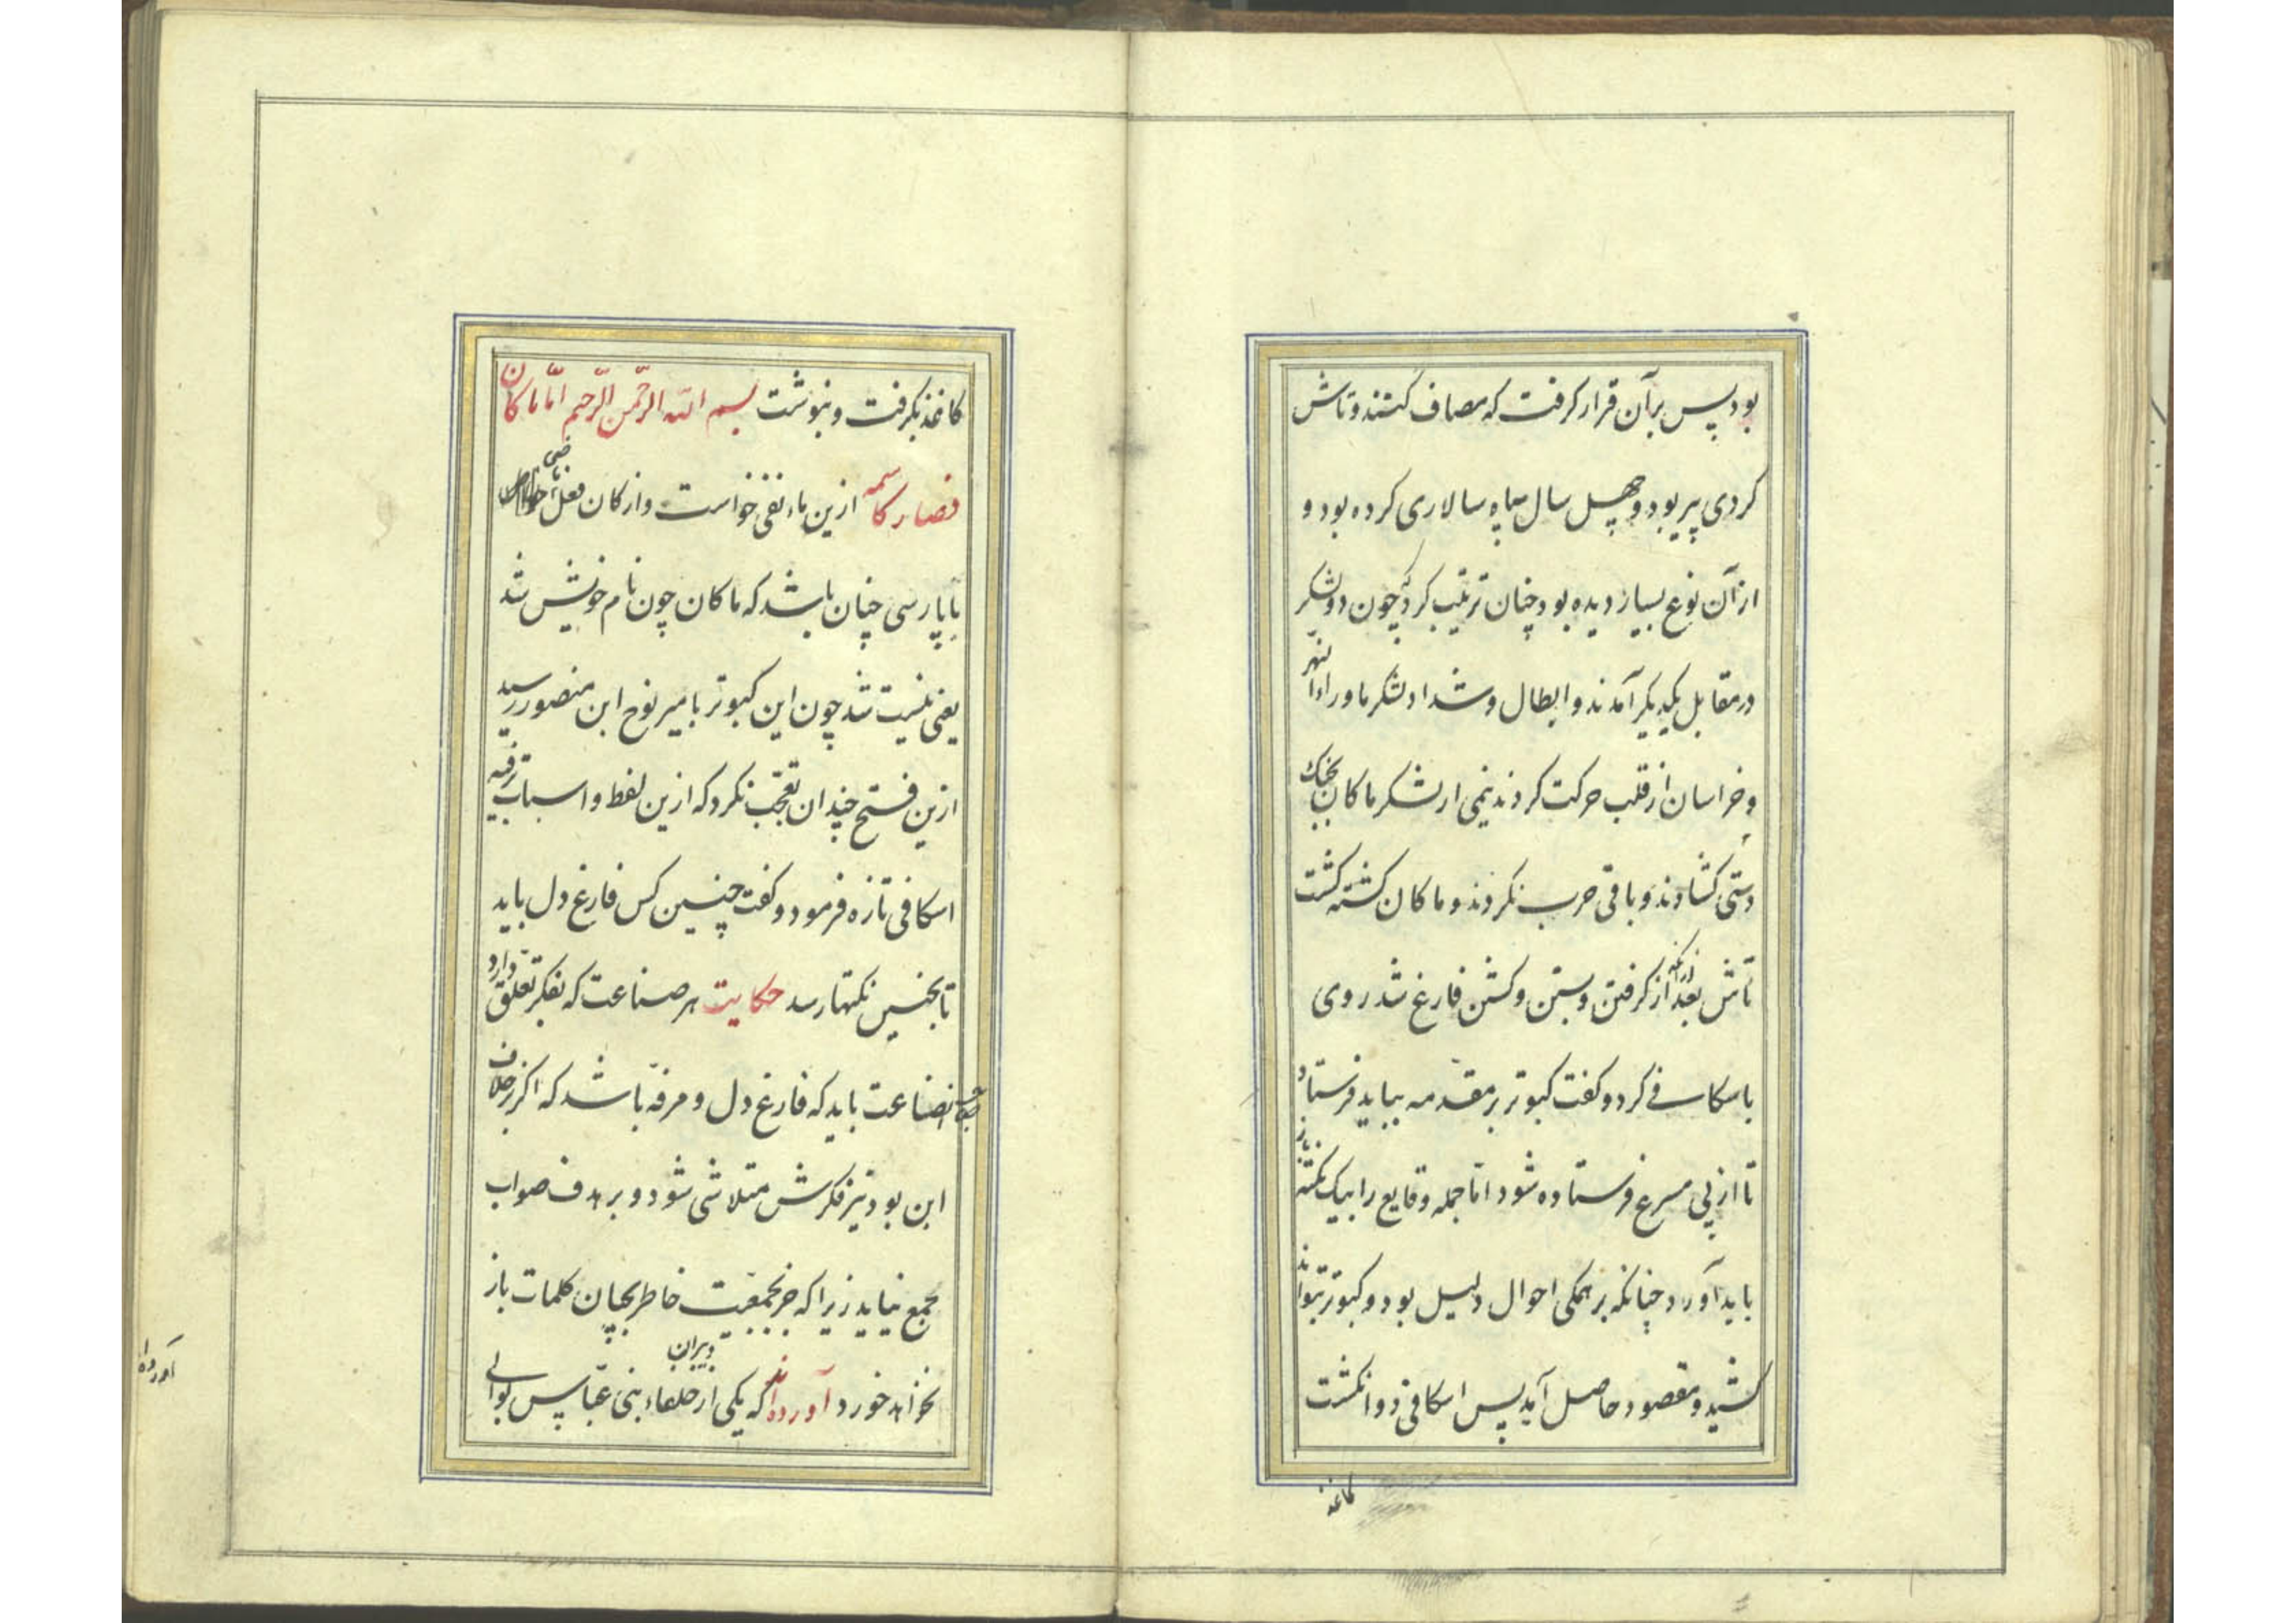 بود پس برآن قرار کرفت که مصاف کنند و تاش
کردی پیر بود و چهل سال سپاه سالاری کرده بود و
از آن نوع بسیار دیده بود چنان ترتیب کرد که چون دو لشکر
در مقابل یکدیکر آمدند و ابطال و شداد لشکر ماوراءالنهر
و خراسان از قلب حرکت کردند نیمی از لشکر ماکان بجنک
دستی کشادند و باقی حرب نکردند و ماکان کشته کشت
تاش بعد ازآنکه از کرفتن و بستن و کشتن فارغ شد روی
باسکافی کرد و کفت کبوتر بر مقدمه بباید فرستاد
تا از پی مسرع فرستاده شود امّا جمله وقایع را بیک نکته باز
باید آورد چنانکه بر همکی احوال دلیل بود و کبوتر بتواند
کشید و مقصود حاصل آید پس اسکافی دو انکشت
کاغذ
کاغذ بکرفت و بنوشت بسم الله الرّحمن الرّحیم امّا ماکان
فصار کاسمه ازین ماء نفی خواست و از کان فعل ماضی
تا پارسی چنان باشد که ماکان چون نام خویش شد
یعنی نیست شد چون این کبوتر بامیر نوح ابن منصور رسید
ازین فتح چندان تعجّب نکرد که ازین لفظ و اسباب ترفیه
اسکافی تازه فرمود و کفت چنین کس فارغ دل باید
تا بچنین نکتها رسد حکایت هر صناعت که بفکر تعلّق دارد
صاحب آنصناعت باید که فارغ دل و مرفّه باشد که اکر برخلاف
این بود تیز فکرش متلاشی شود و بر هدف صواب
بجمع نیاید زیرا که جز بجمعیّت خاطر بچنان کلمات باز
نخواهد خورد آورده‌اند که یکی از دبیران خلفاء بنی عبّاس بوالی
آورده‌اند